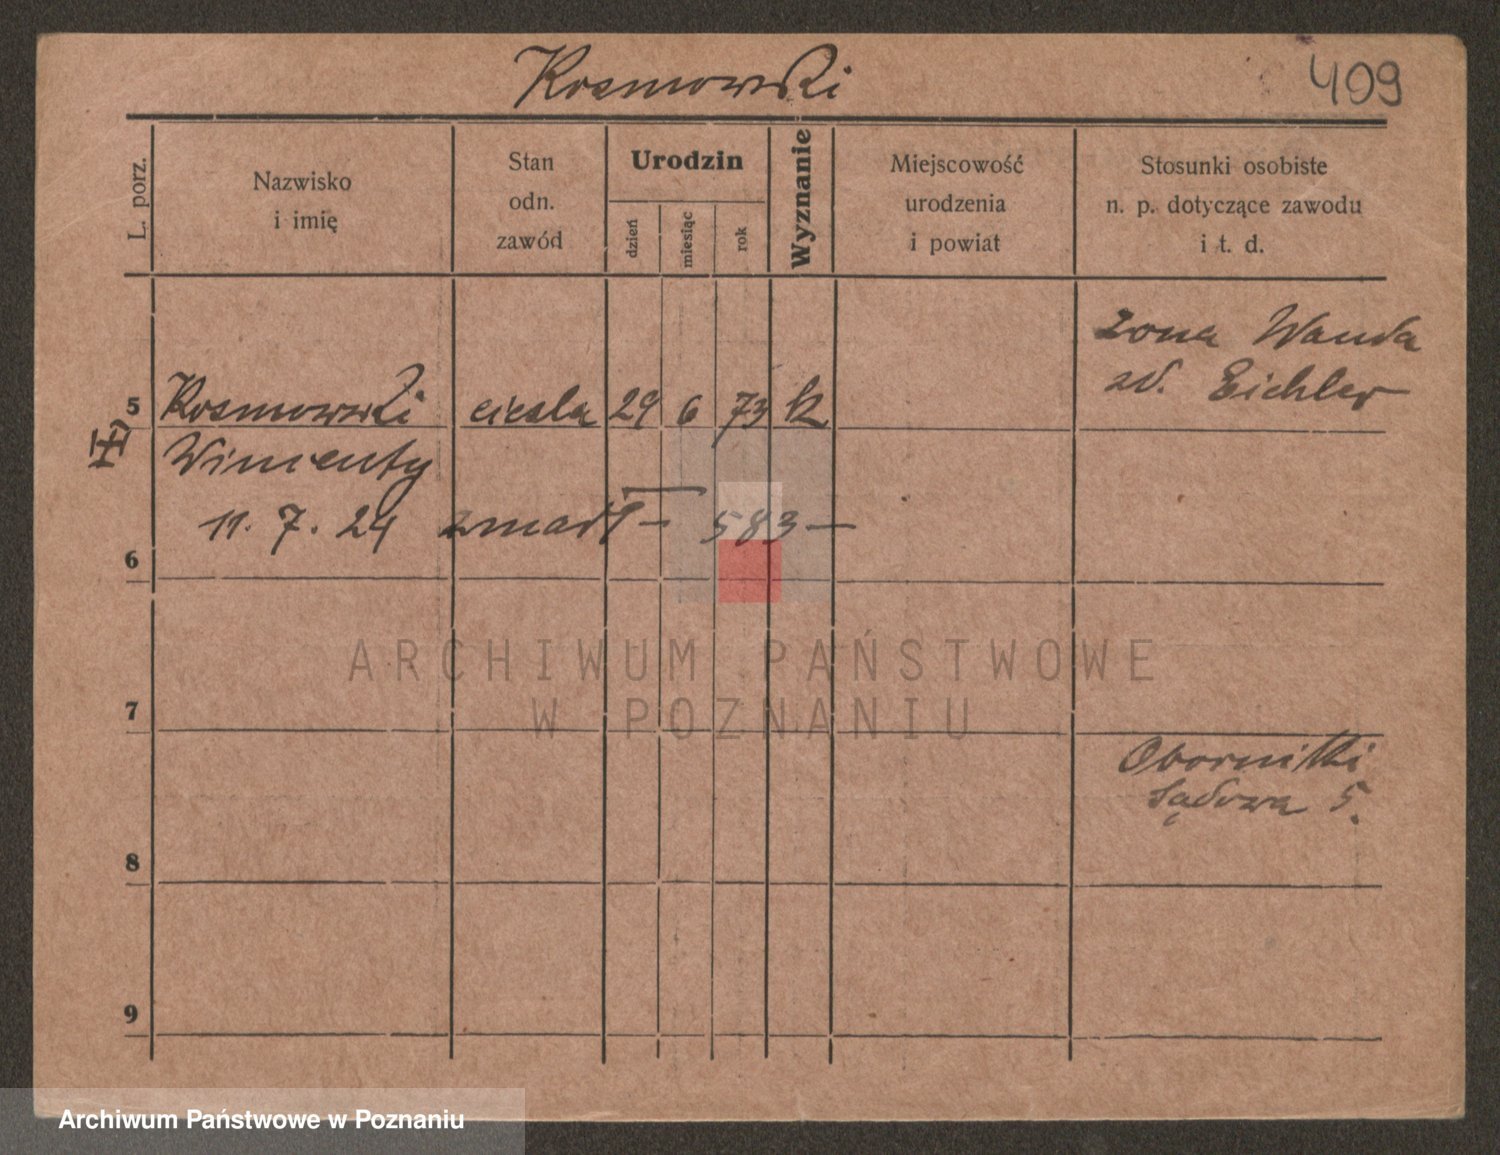 Kosmowski
409
L. porz.
Nazwisko
i imię
Stan
odn.
zawód
Urodzin
dzień
miesiąc
rok
Wyznanie
Miejscowość
urodzenia
i powiat
Stosunki osobiste
n. p. dotyczące zawodu
i t. d.
żona Wanda
zd. Eichler
5 Kosmowski cieśla 29 6 73 k
Wincenty
11. 7. 24 zmarł - 583 -
6
ARCHIWUM PAŃSTWOWE
W POZNANIU
7
Oborniki
Sądowa 5.
8
9
Archiwum Państwowe w Poznaniu